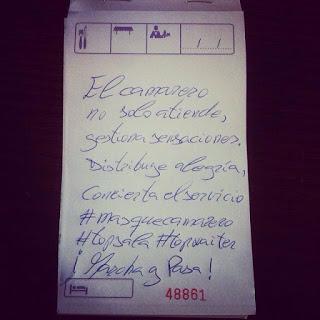 / /
El camarero
no solo atiende,
gestiona sensaciones.
Distribuye alegría,
Convierta el servicio
#masquecamarero
#topsala #topwaiter
¡Marcha y Pasa!
48861